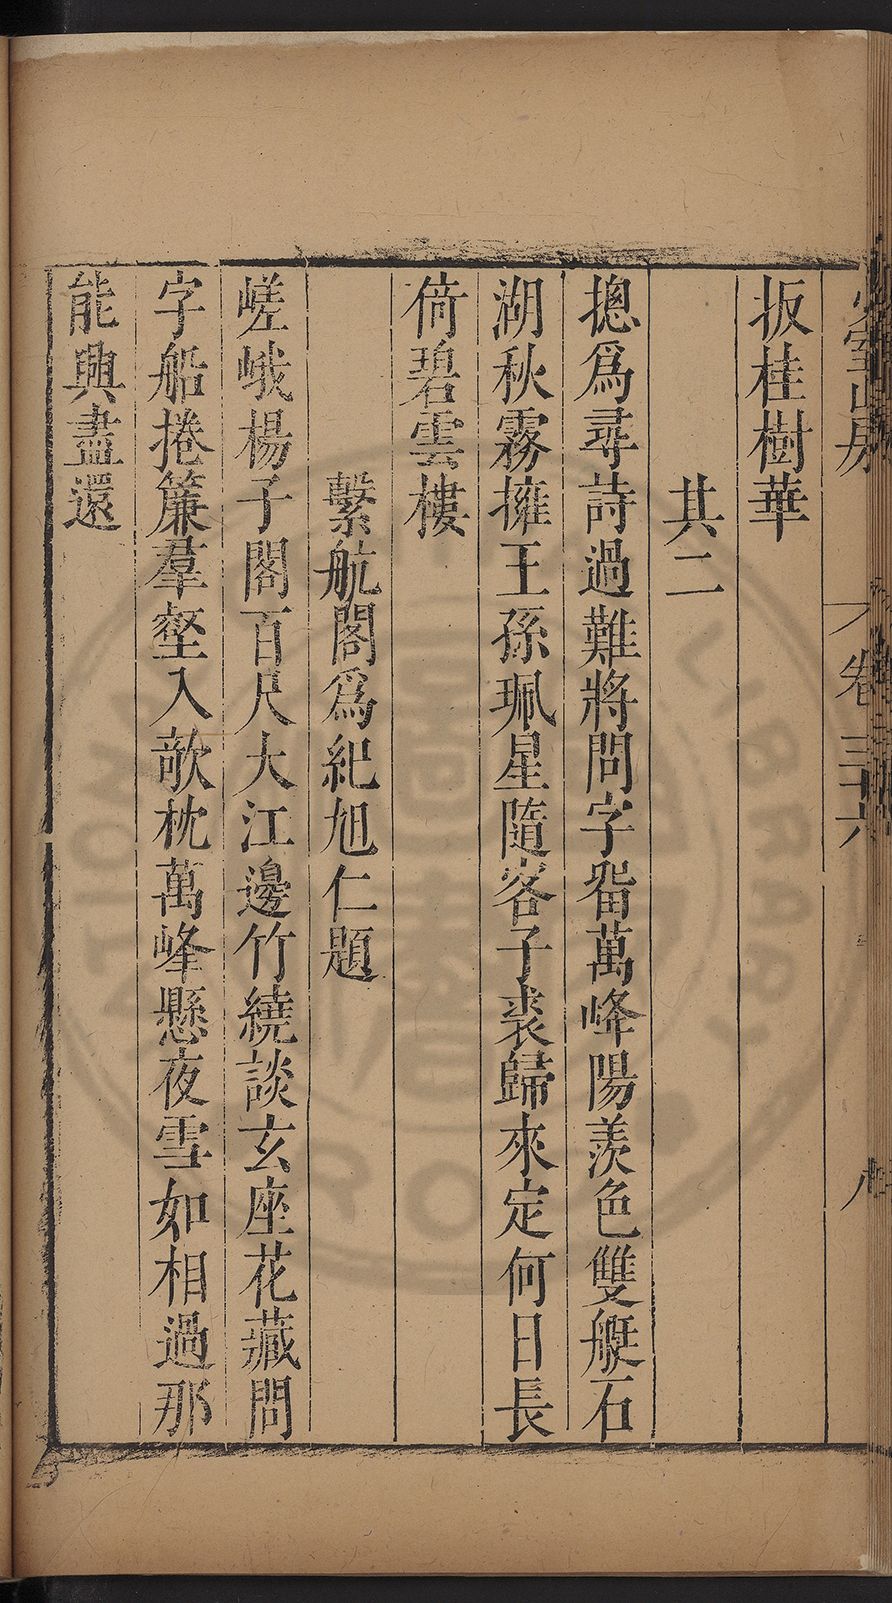 少室山房 卷三十六 八
扳桂樹華
其二
摠爲尋詩過難將問字畱萬峰陽羨色雙艇石
湖秋霧擁王孫珮星隨客子裘歸來定何日長
倚碧雲樓
繫航閣爲紀旭仁題
嵯峨楊子閣百尺大江邊竹繞談玄座花藏問
字船捲簾羣壑入欹枕萬峰懸夜雪如相過那
能興盡還